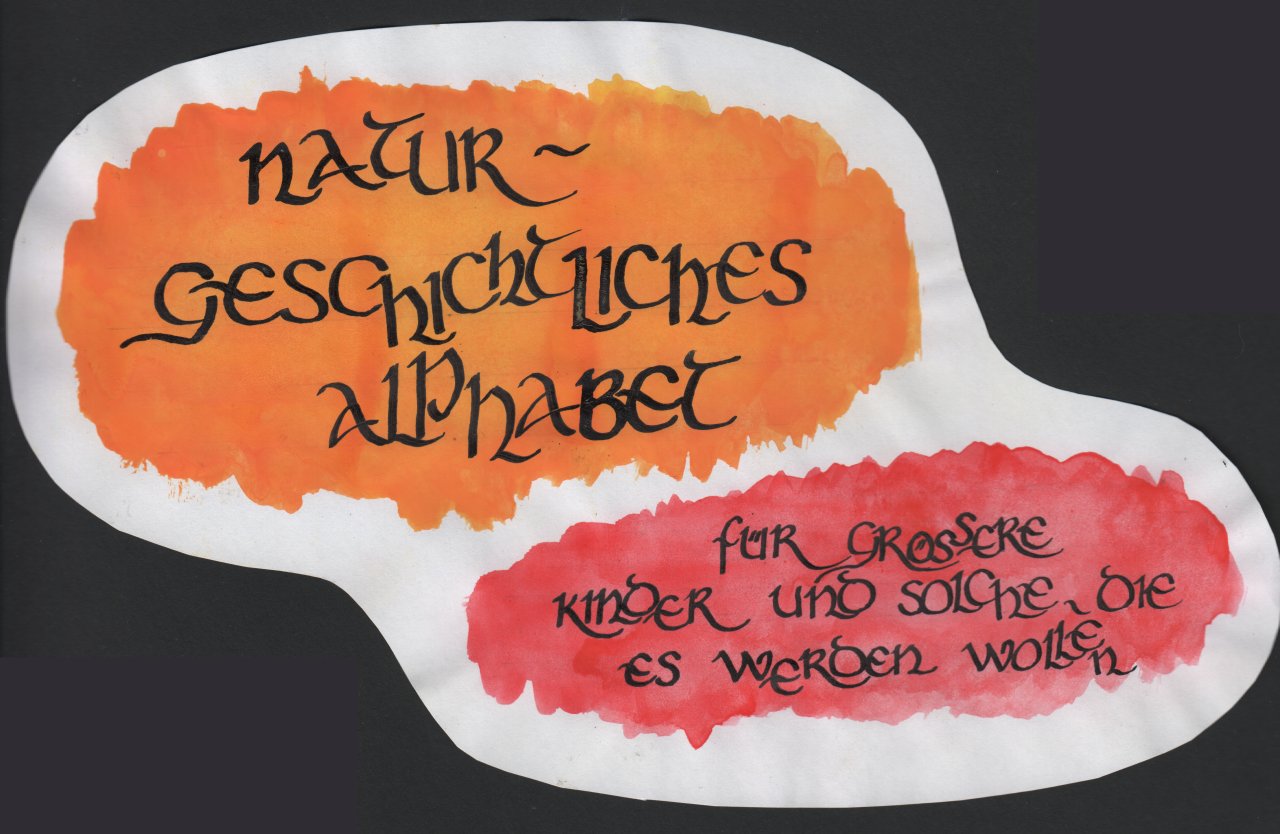 NATUR~
GESCHICHTLICHES
ALPHABET
FÜR GRÖSSERE
KINDER UND SOLCHE, DIE
ES WERDEN WOLLEN